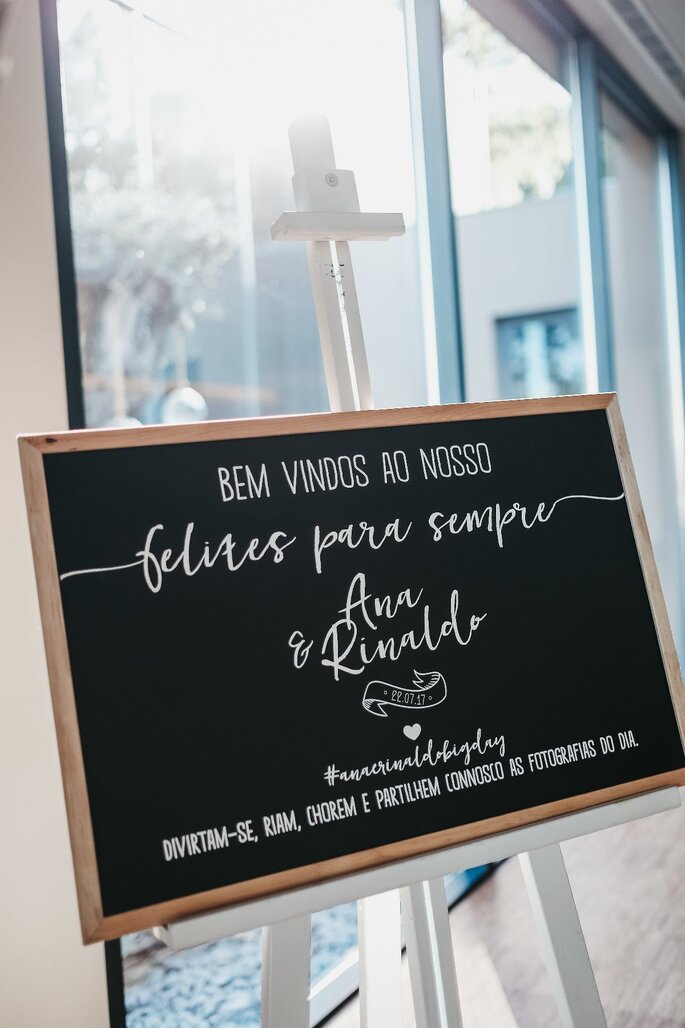 BEM VINDOS AO NOSSO
felizes para sempre
Ana
& Rinaldo
22.07.17
#anaerinaldobigday
DIVIRTAM-SE, RIAM, CHOREM E PARTILHEM CONNOSCO AS FOTOGRAFIAS DO DIA.